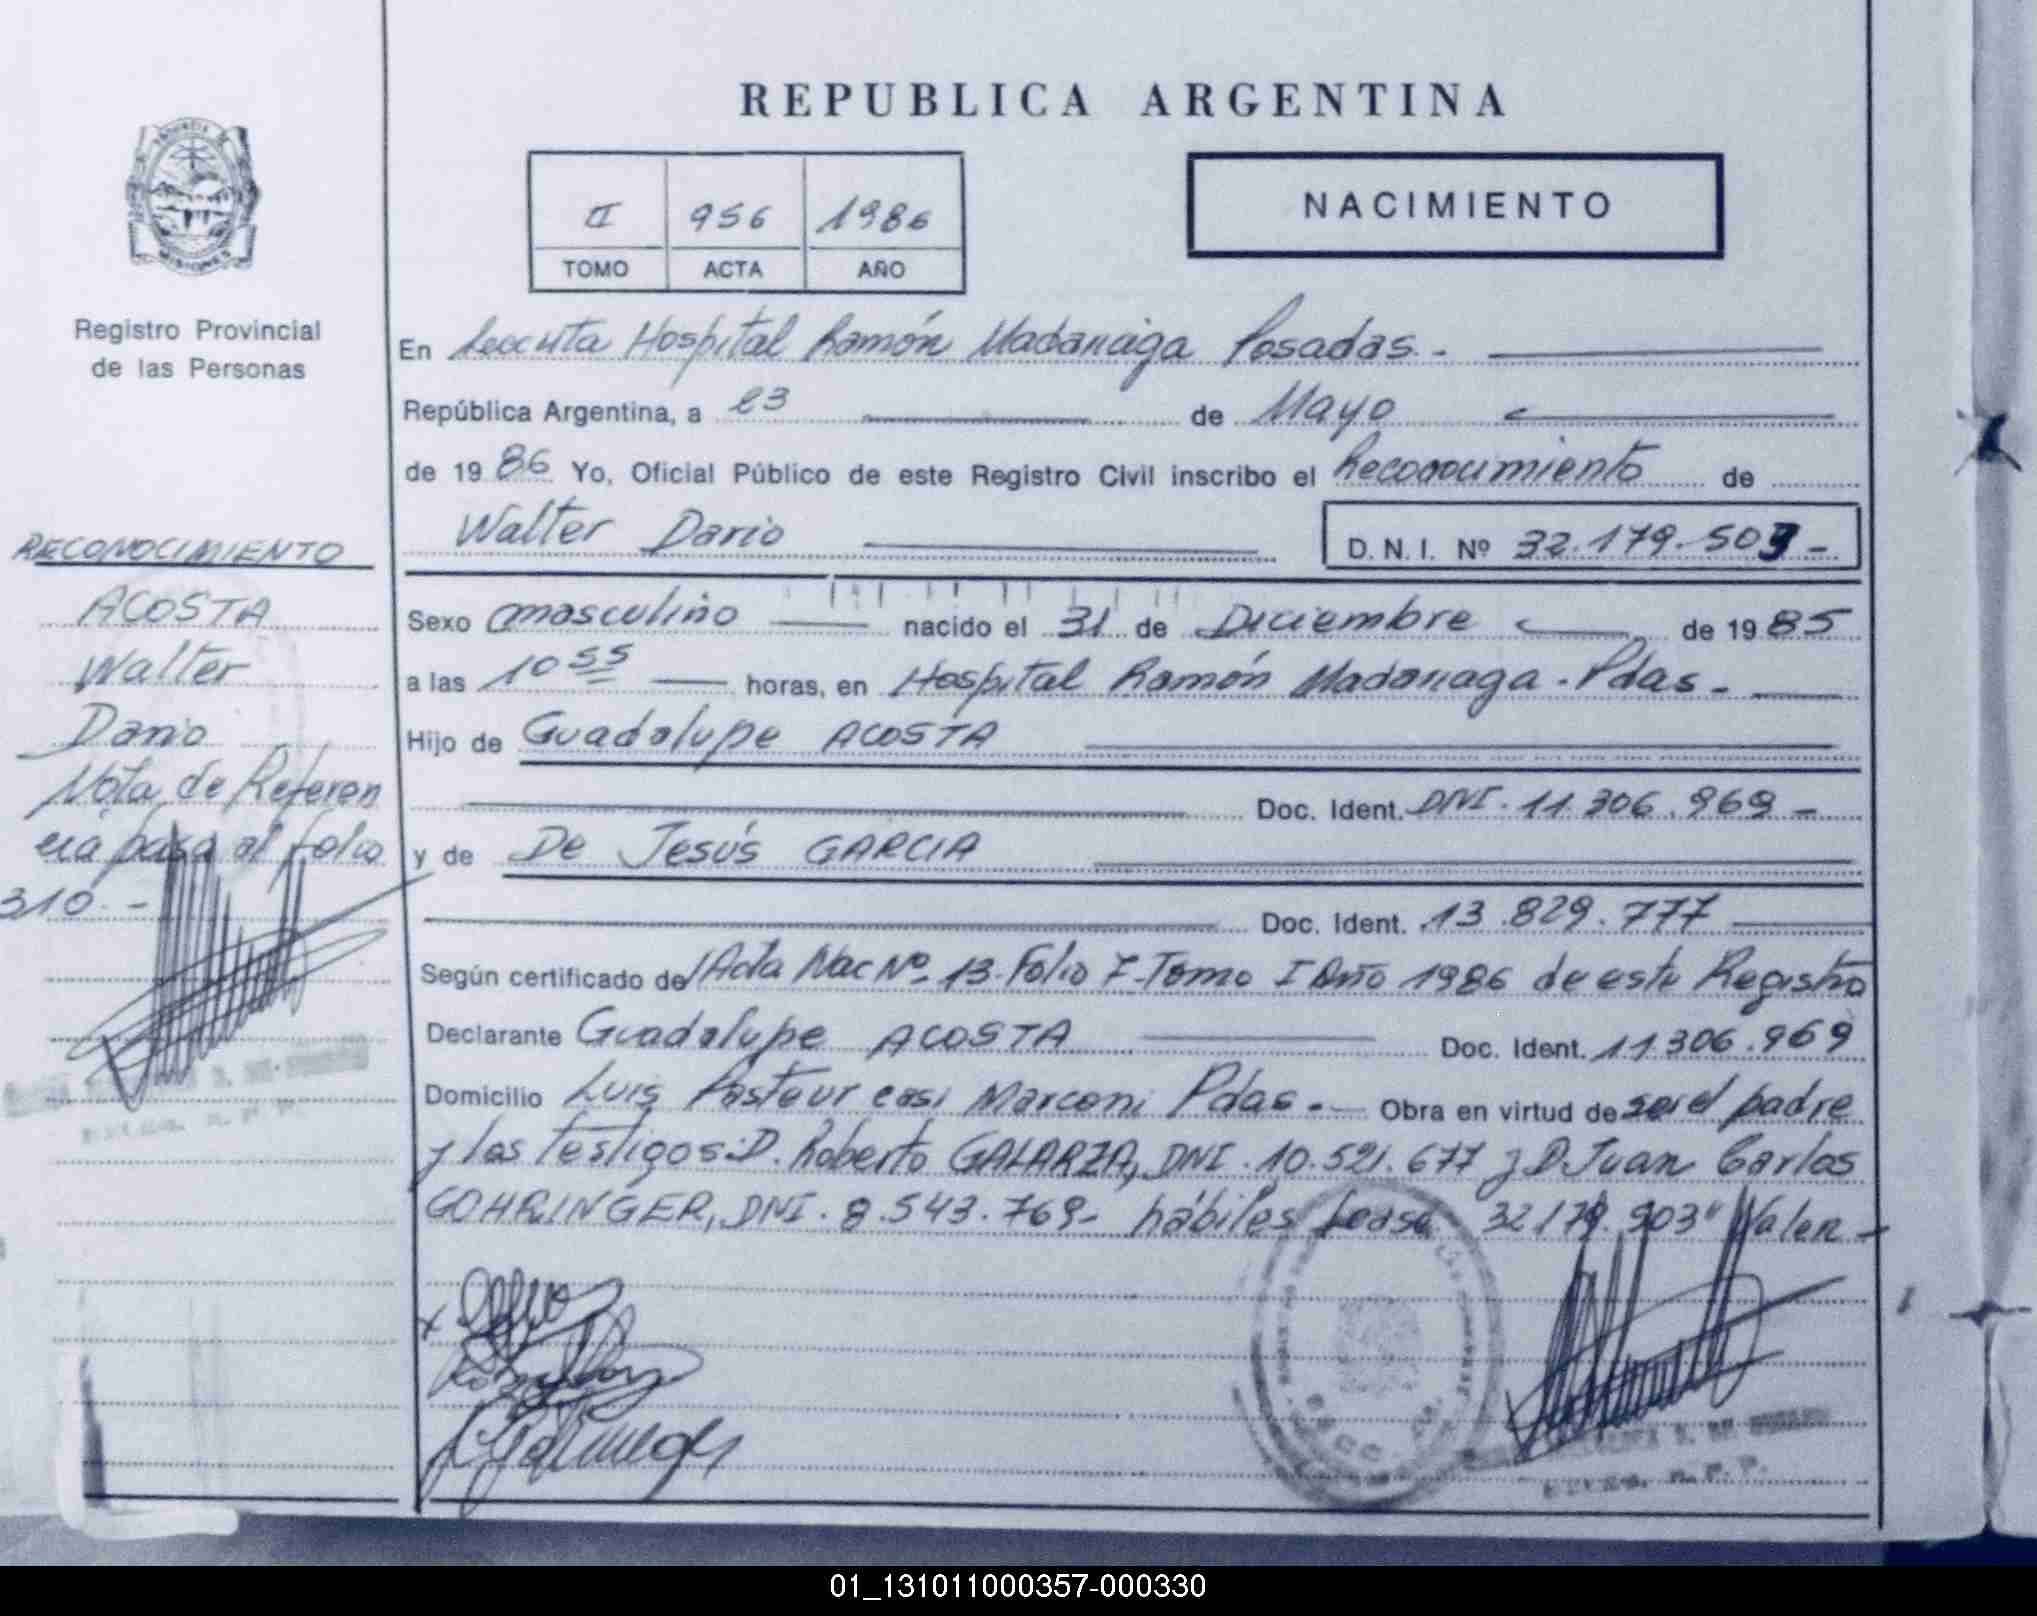 REPUBLICA ARGENTINA
II 956 1986
TOMO ACTA AÑO
NACIMIENTO
PROVINCIA DE
MISIONES
Registro Provincial
de las Personas
En Hospital Ramón Madariaga Posadas.-
República Argentina, a 23 de Mayo
de 1986 Yo, Oficial Público de este Registro Civil inscribo el Reconocimiento de
Walter Dario D. N. I. Nº 32.179.503-
Sexo masculino nacido el 31 de Diciembre de 1985
a las 10 55 horas, en Hospital Ramón Madariaga - Pdas-
Hijo de Guadalupe ACOSTA
Doc. Ident. DNI. 11.306.969-
y de De Jesús GARCIA
Doc. Ident. 13.829.777
Según certificado de Acta Nac Nº 13-Folio 7-Tomo I Año 1986 de este Registro
Declarante Guadalupe ACOSTA Doc. Ident. 11306.969
Domicilio Luis Pasteur casi Marconi Pdas.- Obra en virtud de ser el padre
y los testigos: D. Roberto GALARZA, DNI. 10.521.677 y D. Juan Carlos
GOHRINGER, DNI. 8.543.769- hábiles 32.179.503" Valen-
RECONOCIMIENTO
ACOSTA
Walter
Dario
Nota de Referen
cia pasa al folio
310.-
01_131011000357-000330